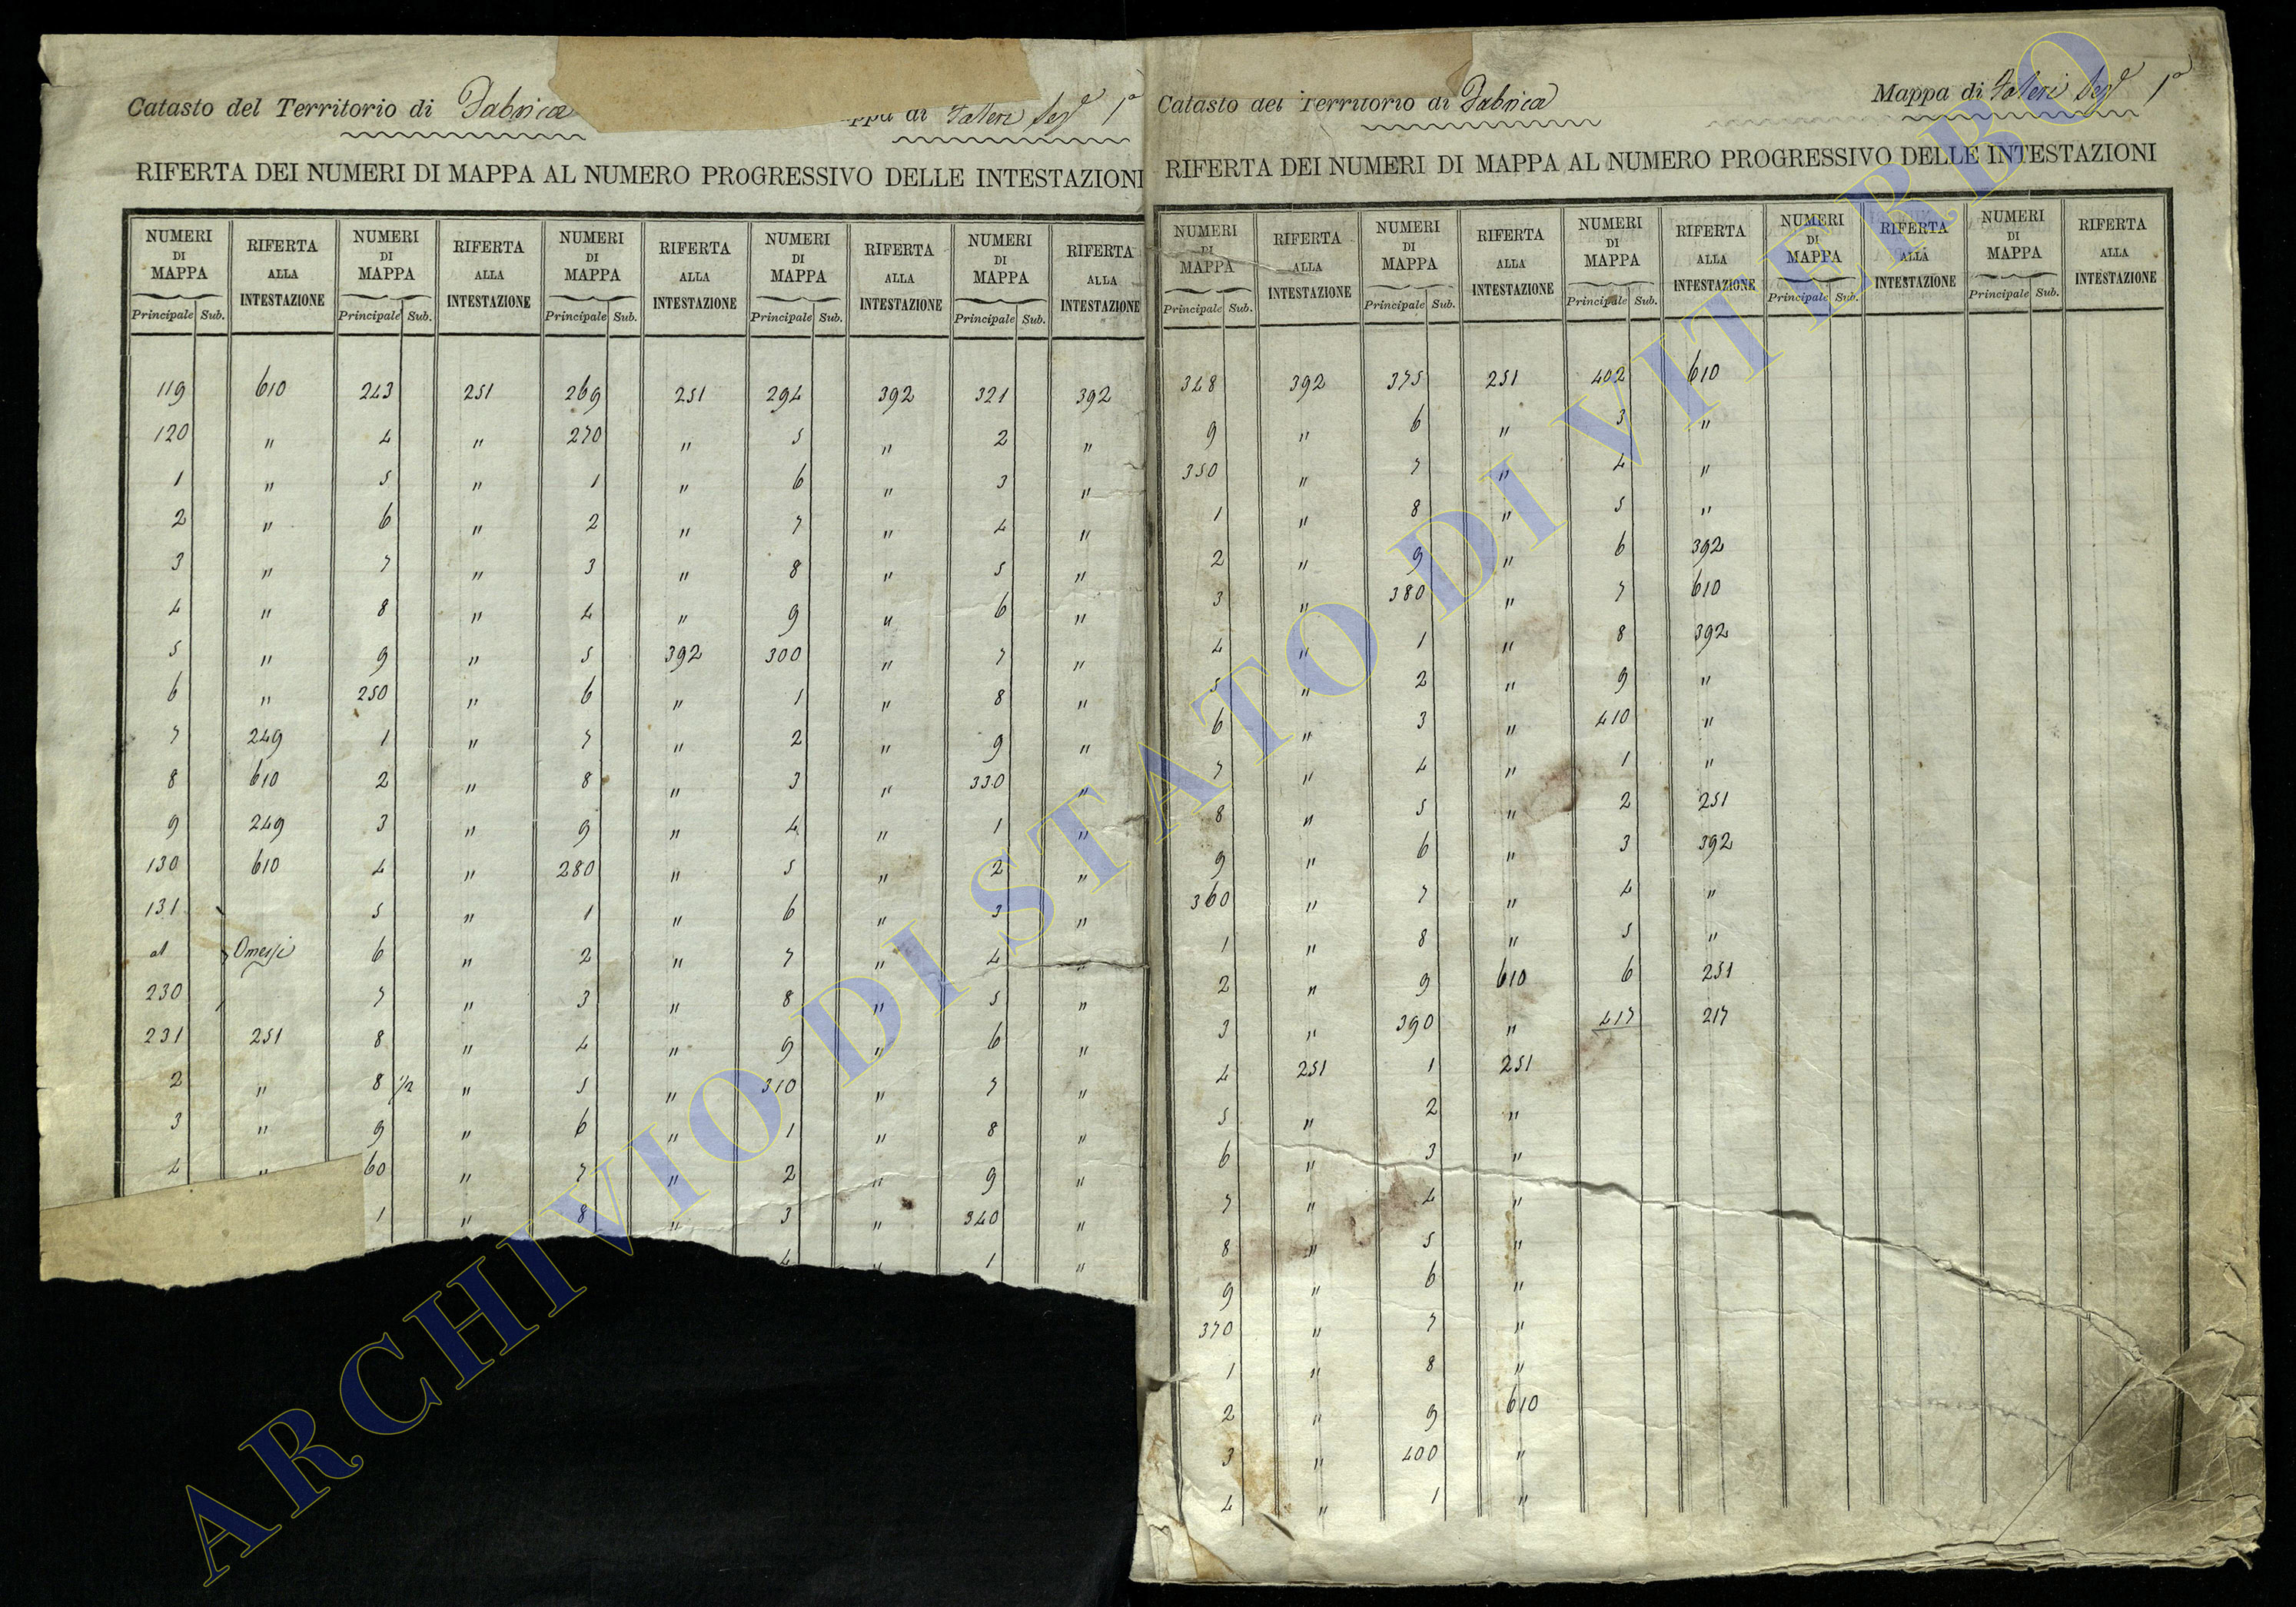 Catasto del Territorio di Fabrica Mappa di Falleri Sez.e 1a
RIFERTA DEI NUMERI DI MAPPA AL NUMERO PROGRESSIVO DELLE INTESTAZIONI
NUMERI DI MAPPA RIFERTA ALLA INTESTAZIONE NUMERI DI MAPPA RIFERTA ALLA INTESTAZIONE NUMERI DI MAPPA RIFERTA ALLA INTESTAZIONE NUMERI DI MAPPA RIFERTA ALLA INTESTAZIONE NUMERI DI MAPPA RIFERTA ALLA INTESTAZIONE
Principale Sub. Principale Sub. Principale Sub. Principale Sub. Principale Sub.
119 610 243 251 269 251 294 392 321 392
120 " 4 " 270 " 5 " 2 "
1 " 5 " 1 " 6 " 3 "
2 " 6 " 2 " 7 " 4 "
3 " 7 " 3 " 8 " 5 "
4 " 8 " 4 " 9 " 6 "
5 " 9 " 5 392 300 " 7 "
6 " 250 " 6 " 1 " 8 "
7 249 1 " 7 " 2 " 9 "
8 610 2 " 8 " 3 " 330 "
9 249 3 " 9 " 4 " 1 "
130 610 4 " 280 " 5 " 2 "
131 5 " 1 " 6 " 3 "
al Omessi 6 " 2 " 7 " 4 "
230 7 " 3 " 8 " 5 "
231 251 8 " 4 " 9 " 6 "
2 " 8 1/2 " 5 " 310 " 7 "
3 " 9 " 6 " 1 " 8 "
4 " 60 " 7 " 2 " 9 "
1 " 8 " 3 " 340 "
4 " 1 "
Catasto del Territorio di Fabrica Mappa di Falleri Sez.e 1a
RIFERTA DEI NUMERI DI MAPPA AL NUMERO PROGRESSIVO DELLE INTESTAZIONI
NUMERI DI MAPPA RIFERTA ALLA INTESTAZIONE NUMERI DI MAPPA RIFERTA ALLA INTESTAZIONE NUMERI DI MAPPA RIFERTA ALLA INTESTAZIONE NUMERI DI MAPPA RIFERTA ALLA INTESTAZIONE NUMERI DI MAPPA RIFERTA ALLA INTESTAZIONE
Principale Sub. Principale Sub. Principale Sub. Principale Sub. Principale Sub.
348 392 375 251 402 610
9 " 6 " 3 "
350 " 7 " 4 "
1 " 8 " 5 "
2 " 9 " 6 392
3 " 380 " 7 610
4 " 1 " 8 392
5 " 2 " 9 "
6 " 3 " 410 "
7 " 4 " 1 "
8 " 5 " 2 251
9 " 6 " 3 392
360 " 7 " 4 "
1 " 8 " 5 "
2 " 9 610 6 251
3 " 390 " 417 217
4 251 1 251
5 " 2 "
6 " 3 "
7 " 4 "
8 " 5 "
9 " 6 "
370 " 7 "
1 " 8 "
2 " 9 610
3 " 400 "
4 " 1 "
ARCHIVIO DI STATO DI VITERBO